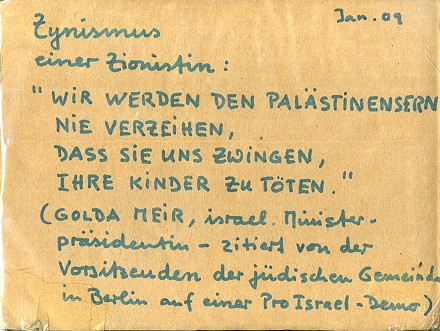 Jan. 09
Zynismus
einer Zionistin:
"WIR WERDEN DEN PALÄSTINENSERN
NIE VERZEIHEN,
DASS SIE UNS ZWINGEN,
IHRE KINDER ZU TÖTEN."
(GOLDA MEIR, israel. Minister-
präsidentin – zitiert von der
Vorsitzenden der jüdischen Gemeinde
in Berlin auf einer Pro Israel-Demo)